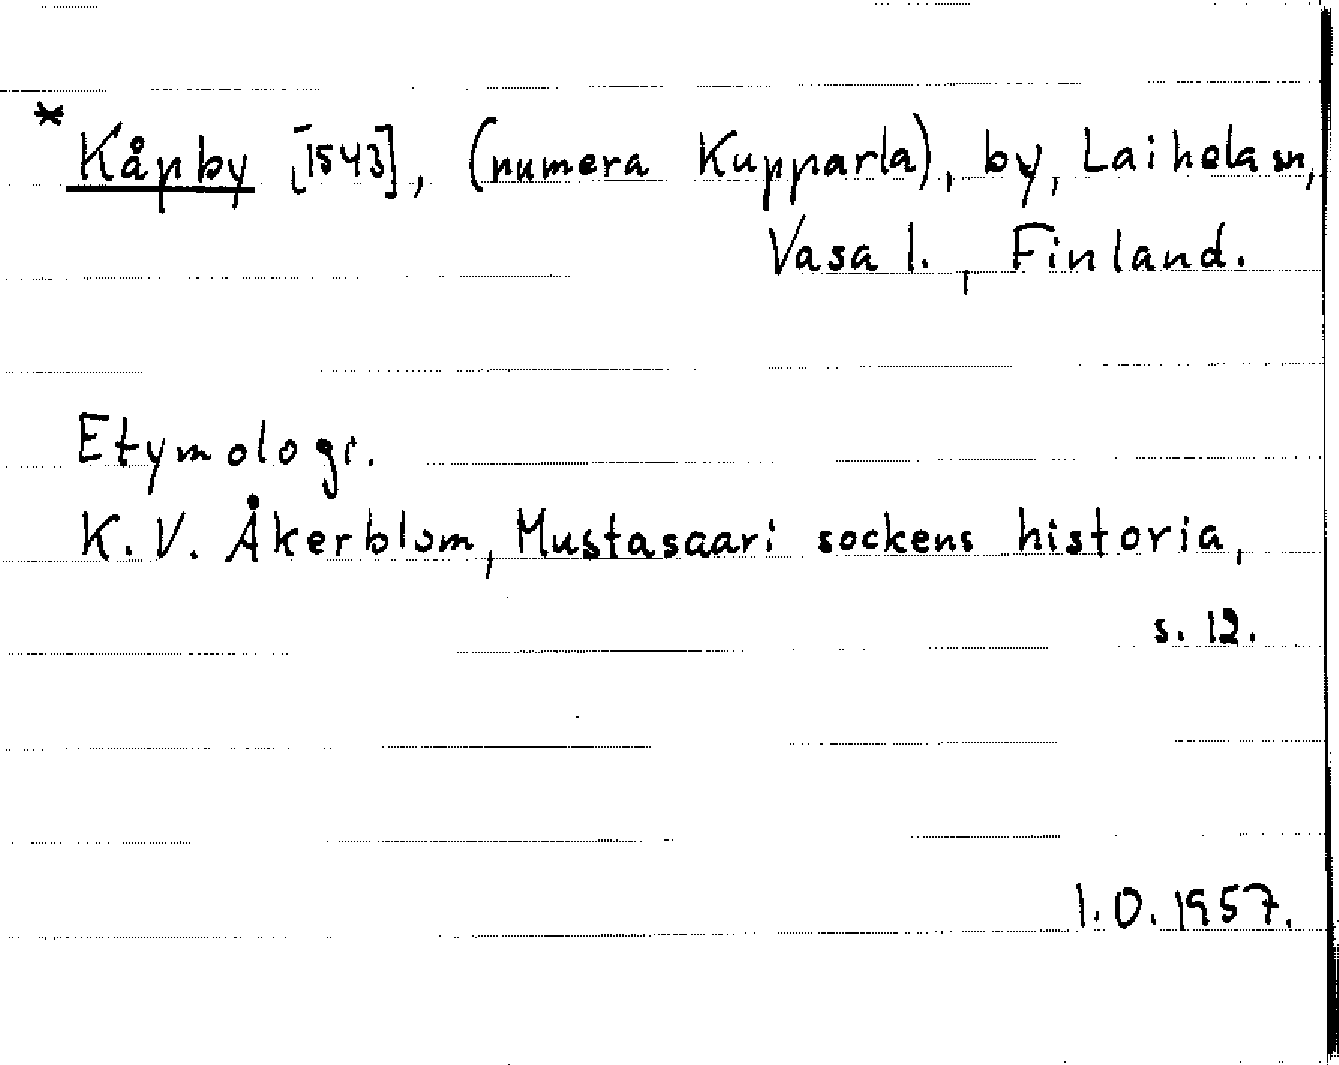 * Kåpby [1543], (numera Kupparla), by, Laihela sn,
Vasa l., Finland.
Etymologi.
K. V. Åkerblom, Mustasaari sockens historia,
s. 12.
I.O. 1957.